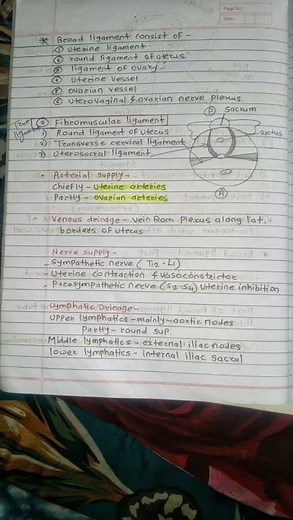 Page No.
Date
* Broad ligament consist of -
① uterine ligament
② round ligament of uterus
③ ligament of ovary
④ uterine vessel
⑤ ovarian vessel
⑥ uterovaginal & ovarian nerve plexus.
② Fibromuscular ligament
True ligament
1) Round ligament of uterus
2) Transverse cervical ligament
3) Uterosacral ligament
Ⓟ Sacrum
rectus
Ⓐ
• Arterial supply -
chiefly - uterine arteries
Partly - ovarian arteries
• Venous drinage - vein from plexus along lat.
borders of uterus
Nerve supply -
- Sympathetic nerve (T12 - L1)
- Uterine contraction & vasoconstrictor
- Parasympathetic nerve (S2-S4) uterine inhibition
Lymphatic Drinage -
upper lymphatics - mainly - aortic nodes
Partly - round sup
Middle lymphatics - external iliac nodes
lower lymphatics - internal iliac sacral